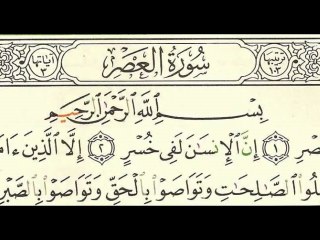 ترتيبها ١٠٣ سُورَةُ الْعَصْرِ آياتها ٣
بِسْمِ ٱللَّهِ ٱلرَّحْمَٰنِ ٱلرَّحِيمِ
صْرِ ١ إِنَّ ٱلْإِنسَٰنَ لَفِى خُسْرٍ ٢ إِلَّا ٱلَّذِينَ ءَامَ
لُوا۟ ٱلصَّٰلِحَٰتِ وَتَوَاصَوْا۟ بِٱلْحَقِّ وَتَوَاصَوْا۟ بِٱلصَّبْرِ